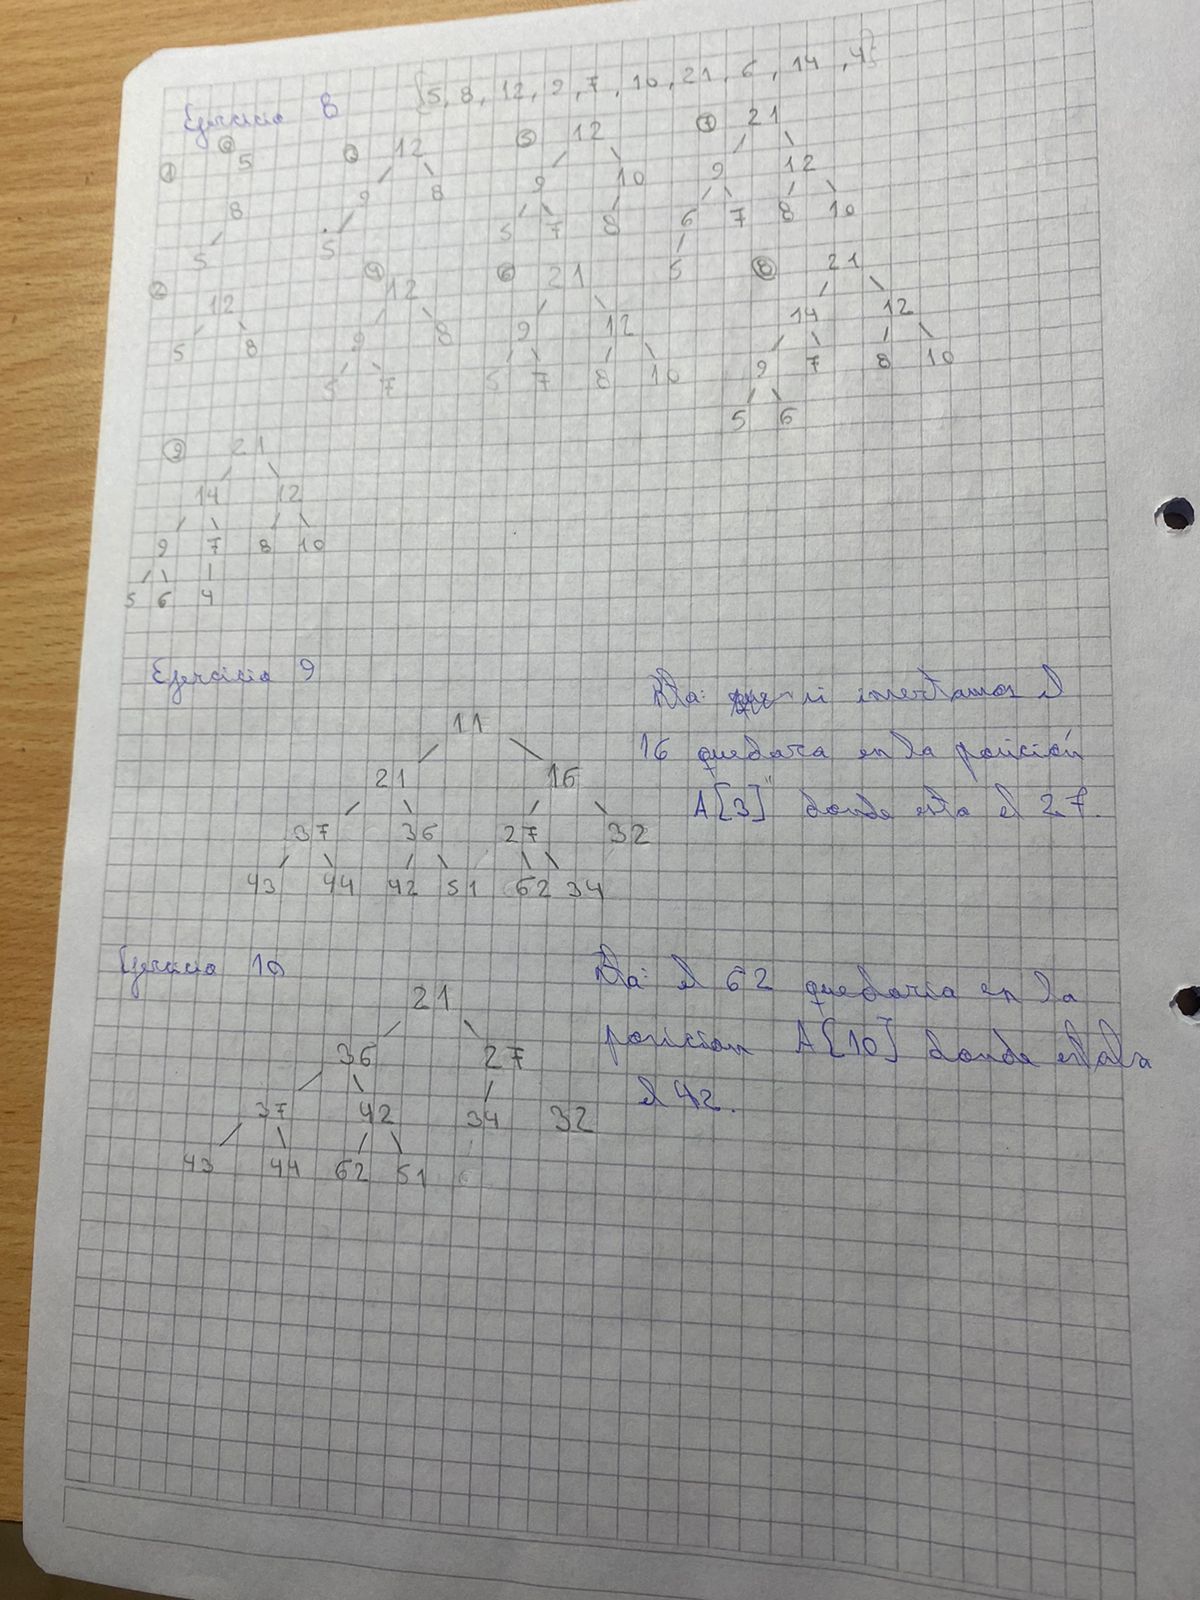 Ejercicio 8 {5, 8, 12, 9, 7, 10, 21, 6, 14, 4}
0 5
1
8
5
2
12
5 8
3 12
9 8
5
4
12
9 8
5 7
5 12
9 10
5 7 8
6 21
9 12
5 7 8 10
7 21
9 12
6 7 8 10
5
8 21
14 12
9 7 8 10
5 6
9 21
14 12
9 7 8 10
5 6 4
Ejercicio 9
11
21 16
37 36 27 32
43 44 42 51 62 34
Rta: si insertamos el
16 quedara en la posición
A[3] donde esta el 27.
Ejercicio 10
21
36 27
37 42 34 32
43 44 62 51
Rta: el 62 quedaria en la
posicion A[10] donde estaba
el 42.